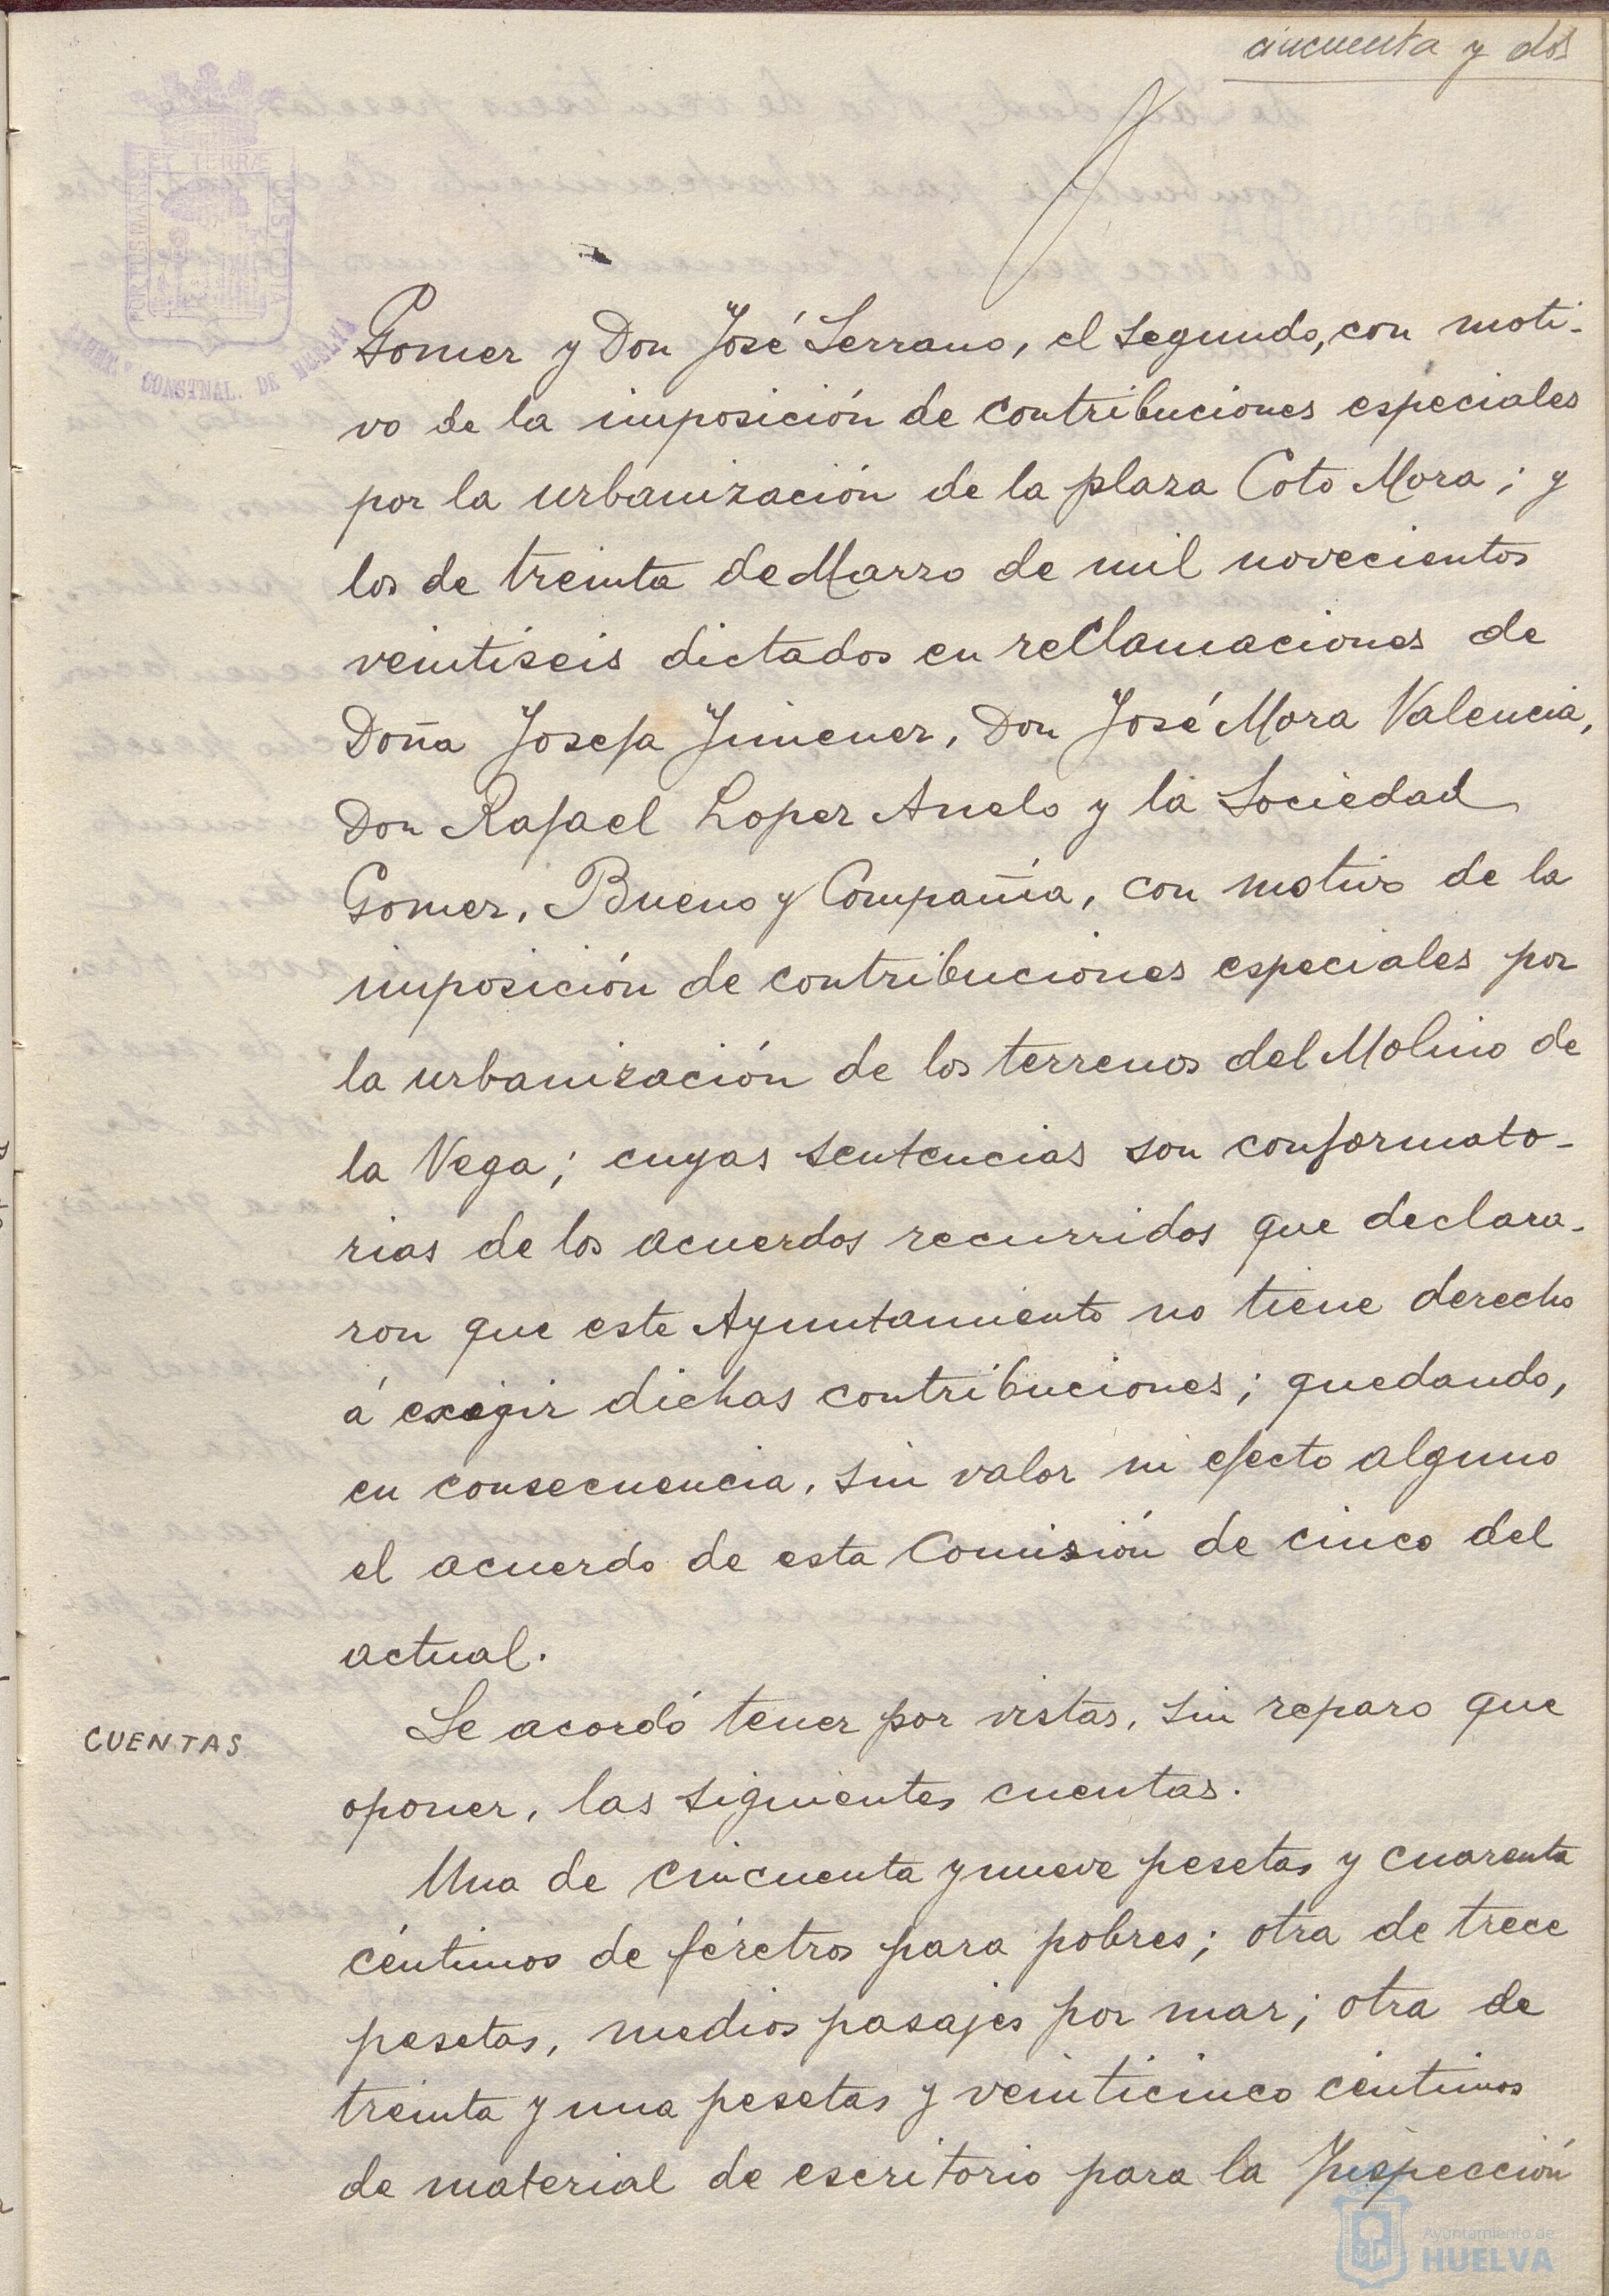 cincuenta y dos
PORTUS MARIS ET TERRÆ CUSTODIA
CONSTNAL. DE HUELVA
Gomez y Don José Serrano, el segundo, con moti-
vo de la imposición de contribuciones especiales
por la urbanización de la plaza Coto Mora; y
los de treinta de Marzo de mil novecientos
veintiseis dictados en reclamaciones de
Doña Josefa Jimenez, Don José Mora Valencia,
Don Rafael Lopez Anelo y la Sociedad
Gomez, Bueno y Compañía, con motivo de la
imposición de contribuciones especiales por
la urbanización de los terrenos del Molino de
la Vega; cuyas sentencias son conformato-
rias de los acuerdos recurridos que declara-
ron que este Ayuntamiento no tiene derecho
á exigir dichas contribuciones; quedando,
en consecuencia, sin valor ni efecto alguno
el acuerdo de esta Comisión de cinco del
actual.
CUENTAS
Se acordó tener por vistas, sin reparo que
oponer, las siguientes cuentas.
Una de cincuenta y nueve pesetas y cuarenta
céntimos de féretros para pobres; otra de trece
pesetas, medios pasajes por mar; otra de
treinta y una pesetas y veinticinco céntimos
de material de escritorio para la Inspección
Ayuntamiento de
HUELVA